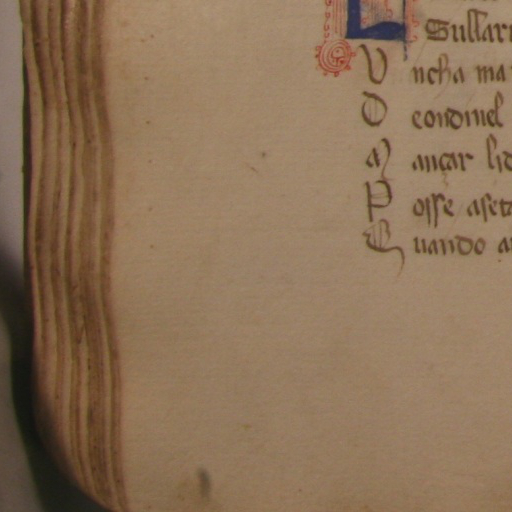 L
Sullar
U ncha ma
D eondinel
M ançar lid
P osse aset
Q uando a